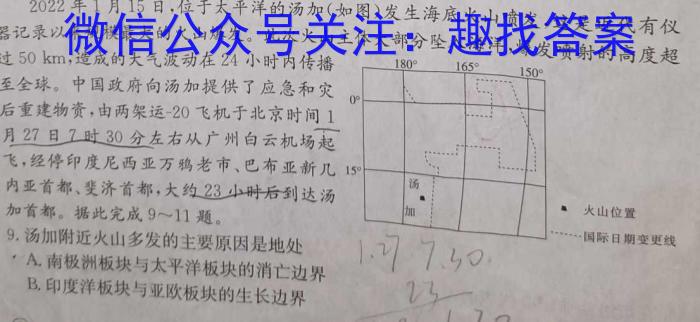 2022年1月15日,位于太平洋的汤加(如图)发生海底火山喷发
器记录以
微信公众号关注：趣找答案
过50 km,造成的大气波动在24小时内传播
至全球。中国政府向汤加提供了应急和灾
后重建物资,由两架运-20飞机于北京时间1
月27日7时30分左右从广州白云机场起
飞,经停印度尼西亚万鸦老市、巴布亚新几
内亚首都、斐济首都,大约23小时后到达汤
加首都。据此完成9~11题。
9.汤加附近火山多发的主要原因是地处
A.南极洲板块与太平洋板块的消亡边界
B.印度洋板块与亚欧板块的生长边界
180° 165° 150°
0°
15°
汤
加
火山位置
国际日期变更线
1.27 7.30.
23